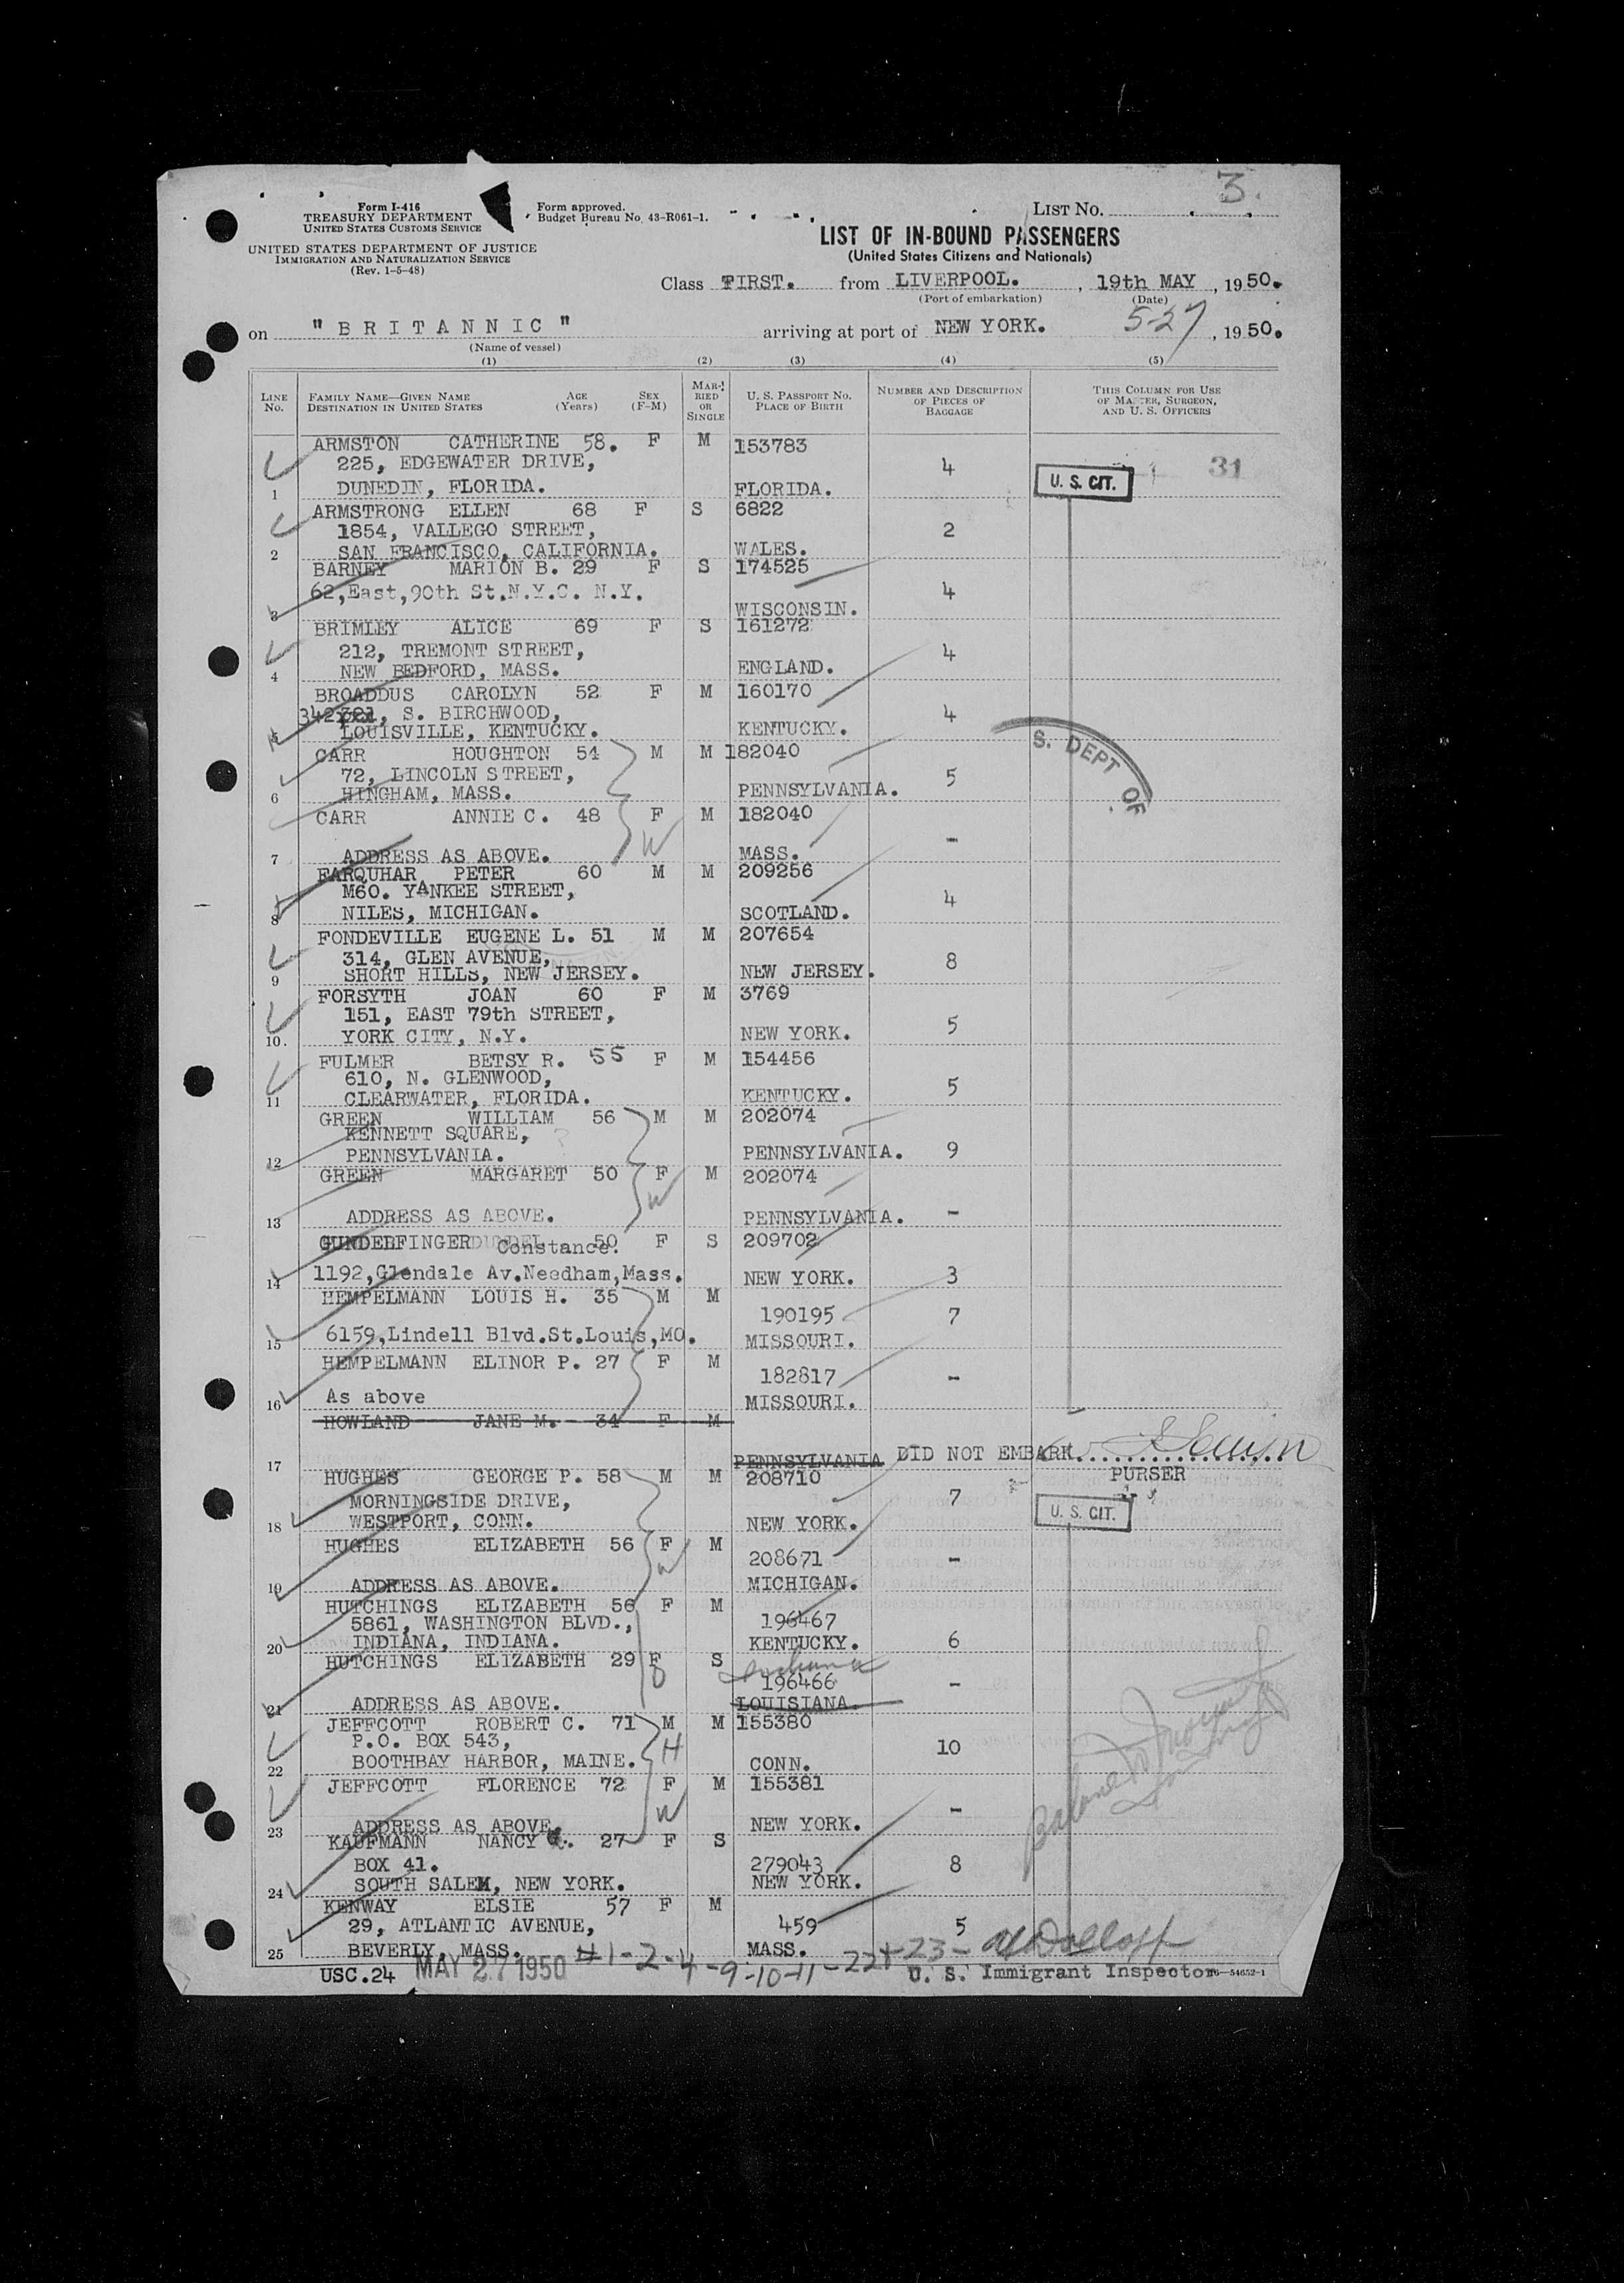 3.
Form I-416
TREASURY DEPARTMENT
UNITED STATES CUSTOMS SERVICE
UNITED STATES DEPARTMENT OF JUSTICE
IMMIGRATION AND NATURALIZATION SERVICE
(Rev. 1-5-48)
Form approved.
Budget Bureau No. 43-R061-1.
LIST NO.
LIST OF IN-BOUND PASSENGERS
(United States Citizens and Nationals)
Class FIRST. from LIVERPOOL. , 19th MAY , 1950.
(Port of embarkation) (Date)
on "BRITANNIC" arriving at port of NEW YORK. 5-27 , 1950.
(Name of vessel)
(1) (2) (3) (4) (5)
LINE NO. FAMILY NAME—GIVEN NAME DESTINATION IN UNITED STATES AGE (Years) SEX (F-M) MARRIED OR SINGLE U. S. PASSPORT NO. PLACE OF BIRTH NUMBER AND DESCRIPTION OF PIECES OF BAGGAGE THIS COLUMN FOR USE OF MASTER, SURGEON, AND U. S. OFFICERS
ARMSTON CATHERINE 58. F M 153783
225, EDGEWATER DRIVE, 4 31
1 DUNEDIN, FLORIDA. FLORIDA. U. S. CIT.
ARMSTRONG ELLEN 68 F S 6822
1854, VALLEGO STREET, 2
2 SAN FRANCISCO, CALIFORNIA. WALES.
BARNEY MARION B. 29 F S 174525
62,East,90th St.N.Y.C. N.Y. 4
3 WISCONSIN.
BRIMLEY ALICE 69 F S 161272
212, TREMONT STREET, 4
4 NEW BEDFORD, MASS. ENGLAND.
BROADDUS CAROLYN 52 F M 160170
342 S. BIRCHWOOD, 4
5 LOUISVILLE, KENTUCKY. KENTUCKY.
S. DEPT OF
CARR HOUGHTON 54 M M 182040
72, LINCOLN STREET, 5
6 HINGHAM, MASS. PENNSYLVANIA.
CARR ANNIE C. 48 F M 182040
W -
7 ADDRESS AS ABOVE. MASS.
FARQUHAR PETER 60 M M 209256
M60. YANKEE STREET, 4
8 NILES, MICHIGAN. SCOTLAND.
FONDEVILLE EUGENE L. 51 M M 207654
314, GLEN AVENUE, 8
9 SHORT HILLS, NEW JERSEY. NEW JERSEY.
FORSYTH JOAN 60 F M 3769
151, EAST 79th STREET, 5
10. YORK CITY, N.Y. NEW YORK.
FULMER BETSY R. 55 F M 154456
610, N. GLENWOOD, 5
11 CLEARWATER, FLORIDA. KENTUCKY.
GREEN WILLIAM 56 M M 202074
KENNETT SQUARE,
12 PENNSYLVANIA. PENNSYLVANIA. 9
GREEN MARGARET 50 F M 202074
W
13 ADDRESS AS ABOVE. PENNSYLVANIA. -
GUNDELFINGER Constance. 50 F S 209702
14 1192,Glendale Av.Needham,Mass. NEW YORK. 3
HEMPELMANN LOUIS H. 35 M M
190195 7
15 6159,Lindell Blvd.St.Louis,MO. MISSOURI.
HEMPELMANN ELINOR P. 27 F M
182817 -
16 As above MISSOURI.
HOWLAND JANE M. 34 F M
17 PENNSYLVANIA DID NOT EMBARK
PURSER
HUGHES GEORGE P. 58 M M 208710
MORNINGSIDE DRIVE, 7
18 WESTPORT, CONN. NEW YORK. U. S. CIT.
HUGHES ELIZABETH 56 F M
W 208671 -
19 ADDRESS AS ABOVE. MICHIGAN.
HUTCHINGS ELIZABETH 56 F M
5861, WASHINGTON BLVD., 196467
20 INDIANA, INDIANA. KENTUCKY. 6
HUTCHINGS ELIZABETH 29 F S Indiana
D 196466 -
21 ADDRESS AS ABOVE. LOUISIANA.
JEFFCOTT ROBERT C. 71 M M 155380
P.O. BOX 543, H 10
22 BOOTHBAY HARBOR, MAINE. CONN.
JEFFCOTT FLORENCE 72 F M 155381
W -
23 ADDRESS AS ABOVE. NEW YORK.
KAUFMANN NANCY 27 F S
BOX 41. 279043 8
24 SOUTH SALEM, NEW YORK. NEW YORK.
KENWAY ELSIE 57 F M
29, ATLANTIC AVENUE, 459 5
25 BEVERLY, MASS. MASS.
USC.24 MAY 27 1950 #1-2-4-9-10-11-22+23-
U. S. Immigrant Inspector
16-54652-1